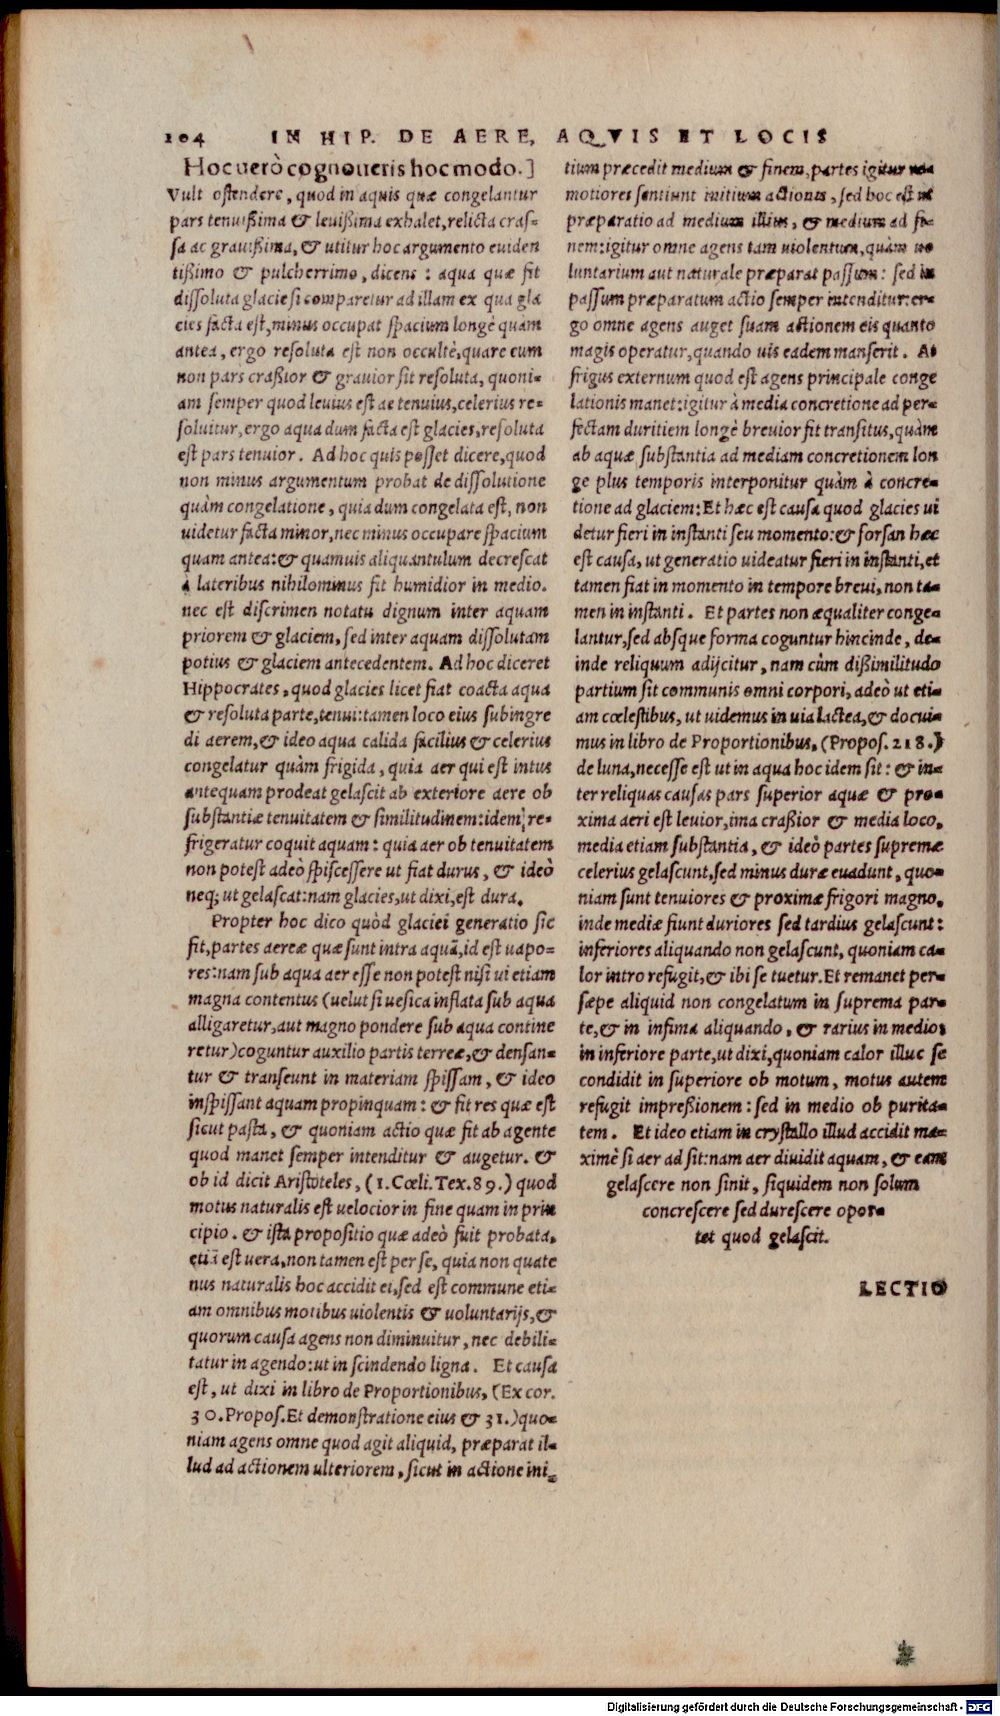 104 IN HIP. DE AERE, AQVIS ET LOCIS
Hoc uerò cognoueris hoc modo.]
Vult ostendere, quod in aquis quæ congelantur
pars tenuißima & leuißima exhalet, relicta cras-
sa ac grauißima, & utitur hoc argumento euiden
tißimo & pulcherrimo, dicens: aqua quæ fit
dissoluta glacie si comparetur ad illam ex qua gla
cies facta est, minus occupat spacium longè quam
antea, ergo resoluta est non occultè, quare cum
non pars craßior & grauior sit resoluta, quoni-
am semper quod leuius est ac tenuius, celerius re-
soluitur, ergo aqua dum facta est glacies, resoluta
est pars tenuior. Ad hoc quis posset dicere, quod
non minus argumentum probat de dissolutione
quàm congelatione, quia dum congelata est, non
uidetur facta minor, nec minus occupare spacium
quam antea: & quamuis aliquantulum decrescat
à lateribus nihilominus fit humidior in medio.
nec est discrimen notatu dignum inter aquam
priorem & glaciem, sed inter aquam dissolutam
potius & glaciem antecedentem. Ad hoc diceret
Hippocrates, quod glacies licet fiat coacta aqua
& resoluta parte, tenui: tamen loco eius subingre
di aerem, & ideo aqua calida facilius & celerius
congelatur quàm frigida, quia aer qui est intus
antequam prodeat gelascit ab exteriore aere ob
substantiæ tenuitatem & similitudinem: idem re-
frigeratur coquit aquam: quia aer ob tenuitatem
non potest adeò spiscessere ut fiat durus, & ideò
neq; ut gelascat: nam glacies, ut dixi, est dura.
Propter hoc dico quòd glaciei generatio sic
fit, partes aereæ quæ sunt intra aquã, id est uapo-
res: nam sub aqua aer esse non potest nisi ui etiam
magna contentus (uelut si uesica inflata sub aqua
alligaretur, aut magno pondere sub aqua contine
retur) coguntur auxilio partis terreæ, & densan-
tur & transeunt in materiam spissam, & ideo
inspissant aquam propinquam: & fit res quæ est
sicut pasta, & quoniam actio quæ fit ab agente
quod manet semper intenditur & augetur. &
ob id dicit Aristoteles, (1. Cœli. Tex. 89.) quod
motus naturalis est uelocior in fine quam in prin
cipio. & ista propositio quæ adeò fuit probata,
etiã est uera, non tamen est per se, quia non quate
nus naturalis hoc accidit ei, sed est commune eti-
am omnibus motibus uiolentis & uoluntarijs, &
quorum causa agens non diminuitur, nec debili-
tatur in agendo: ut in scindendo ligna. Et causa
est, ut dixi in libro de Proportionibus, (Ex cor.
30. Propos. Et demonstratione eius & 31.) quo-
niam agens omne quod agit aliquid, præparat il-
lud ad actionem ulteriorem, sicut in actione ini-
tium præcedit medium & finem, partes igitur
motiores sentiunt initium actionis, sed hoc est ut
præparatio ad medium illius, & medium ad fi-
nem: igitur omne agens tam uiolentum, quàm uo
luntarium aut naturale præparat passum: sed in
passum præparatum actio semper intenditur: er-
go omne agens auget suam actionem eis quanto
magis operatur, quando uis eadem manserit. At
frigus externum quod est agens principale conge
lationis manet: igitur à media concretione ad per-
fectam duritiem longè breuior fit transitus, quàm
ab aquæ substantia ad mediam concretionem lon
ge plus temporis interponitur quàm à concre-
tione ad glaciem: Et hæc est causa quod glacies ui
detur fieri in instanti seu momento: & forsan hæc
est causa, ut generatio uideatur fieri in instanti, et
tamen fiat in momento in tempore breui, non ta-
men in instanti. Et partes non æqualiter conge-
lantur, sed absque forma coguntur hincinde, de-
inde reliquum adijcitur, nam cùm dißimilitudo
partium sit communis omni corpori, adeò ut eti-
am cœlestibus, ut uidemus in uia lactea, & docui-
mus in libro de Proportionibus, (Propos. 218.)
de luna, necesse est ut in aqua hoc idem sit: & in-
ter reliquas causas pars superior aquæ & pro-
xima aeri est leuior, ima craßior & media loco,
media etiam substantia, & ideò partes supremæ
celerius gelascunt, sed minus duræ euadunt, quo-
niam sunt tenuiores & proximæ frigori magno,
inde mediæ fiunt duriores sed tardius gelascunt:
inferiores aliquando non gelascunt, quoniam ca-
lor intro refugit, & ibi se tuetur. Et remanet per-
sæpe aliquid non congelatum in suprema par-
te, & in infima aliquando, & rarius in medio:
in inferiore parte, ut dixi, quoniam calor illuc se
condidit in superiore ob motum, motus autem
refugit impreßionem: sed in medio ob purita-
tem. Et ideo etiam in crystallo illud accidit ma-
ximè si aer ad sit: nam aer diuidit aquam, & eam
gelascere non sinit, siquidem non solum
concrescere sed durescere opor-
tet quod gelascit.
LECTIO
Digitalisierung gefördert durch die Deutsche Forschungsgemeinschaft - DFG